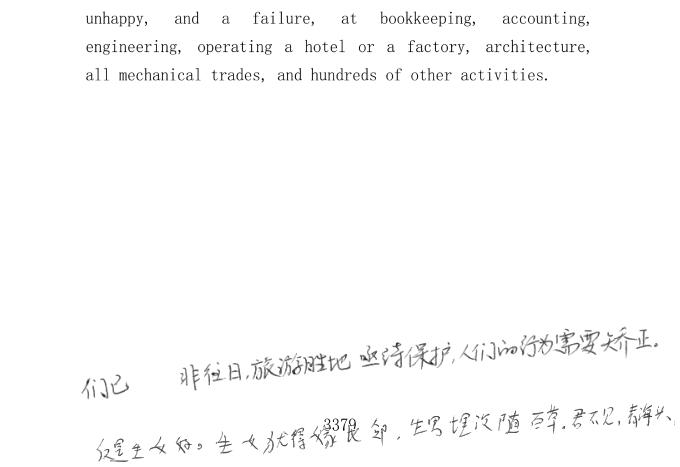 unhappy, and a failure, at bookkeeping, accounting,
engineering, operating a hotel or a factory, architecture,
all mechanical trades, and hundreds of other activities.
们已 非往日,旅游胜地亟待保护,人们的行为需要矫正。
3379
反是生女好。生女犹得嫁比邻,生男埋没随百草。君不见,青海头,